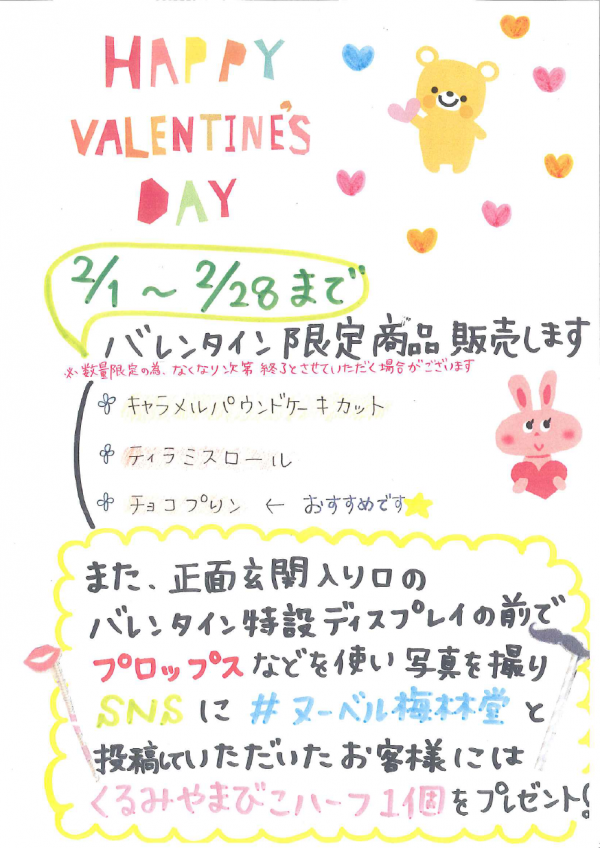 HAPPY
VALENTINE'S
DAY
2/1 〜 2/28 まで
バレンタイン限定商品販売します
※数量限定の為、なくなり次第終了とさせていただく場合がございます
キャラメルパウンドケーキカット
ティラミスロール
チョコプリン ← おすすめです
また、正面玄関入り口の
バレンタイン特設ディスプレイの前で
プロップスなどを使い写真を撮り
SNSに #ヌーベル梅林堂 と
投稿していただいたお客様には
くるみやまびこハーフ1個をプレゼント!